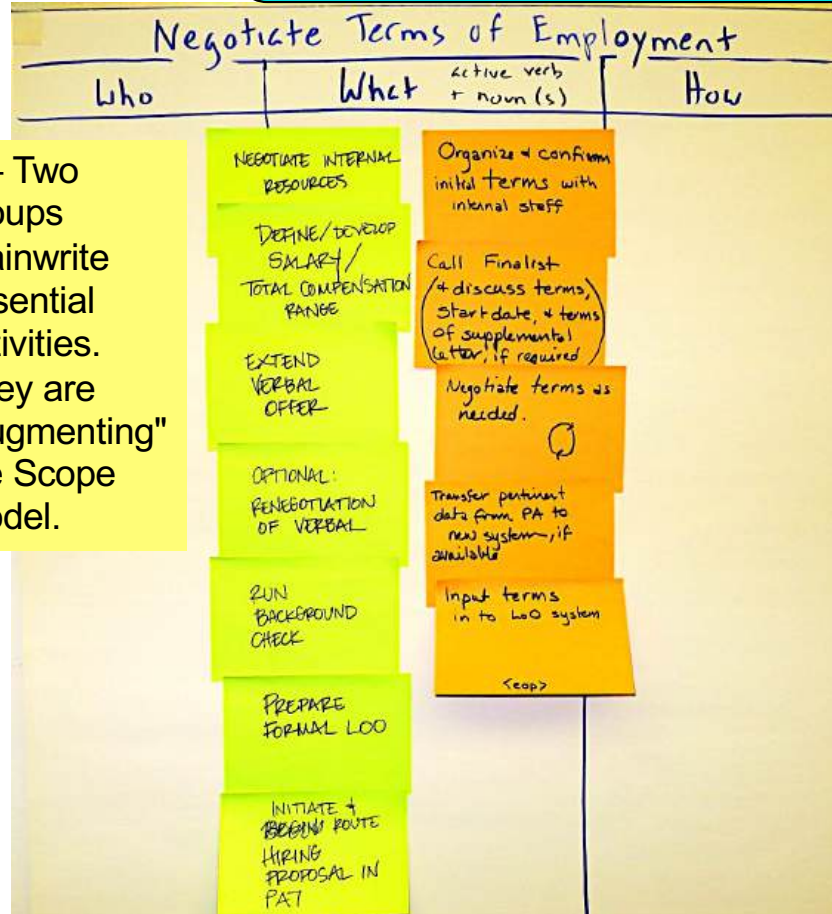 Negotiate Terms of Employment
Who
What
active verb
+ noun(s)
How
Two
Scope
NEGOTIATE INTERNAL
RESOURCES
DEFINE/DEVELOP
SALARY/
TOTAL COMPENSATION
RANGE
EXTEND
VERBAL
OFFER
OPTIONAL:
RENEGOTIATION
OF VERBAL
RUN
BACKGROUND
CHECK
PREPARE
FORMAL LOO
INITIATE +
ROUTE
HIRING
PROPOSAL IN
PA7
Organize + confirm
initial terms with
internal staff
Call Finalist
(+ discuss terms,
start date, + terms
of supplemental
letter, if required)
Negotiate terms as
needed.
Transfer pertinent
data from PA to
new system, if
available
Input terms
in to LoO system
<eop>